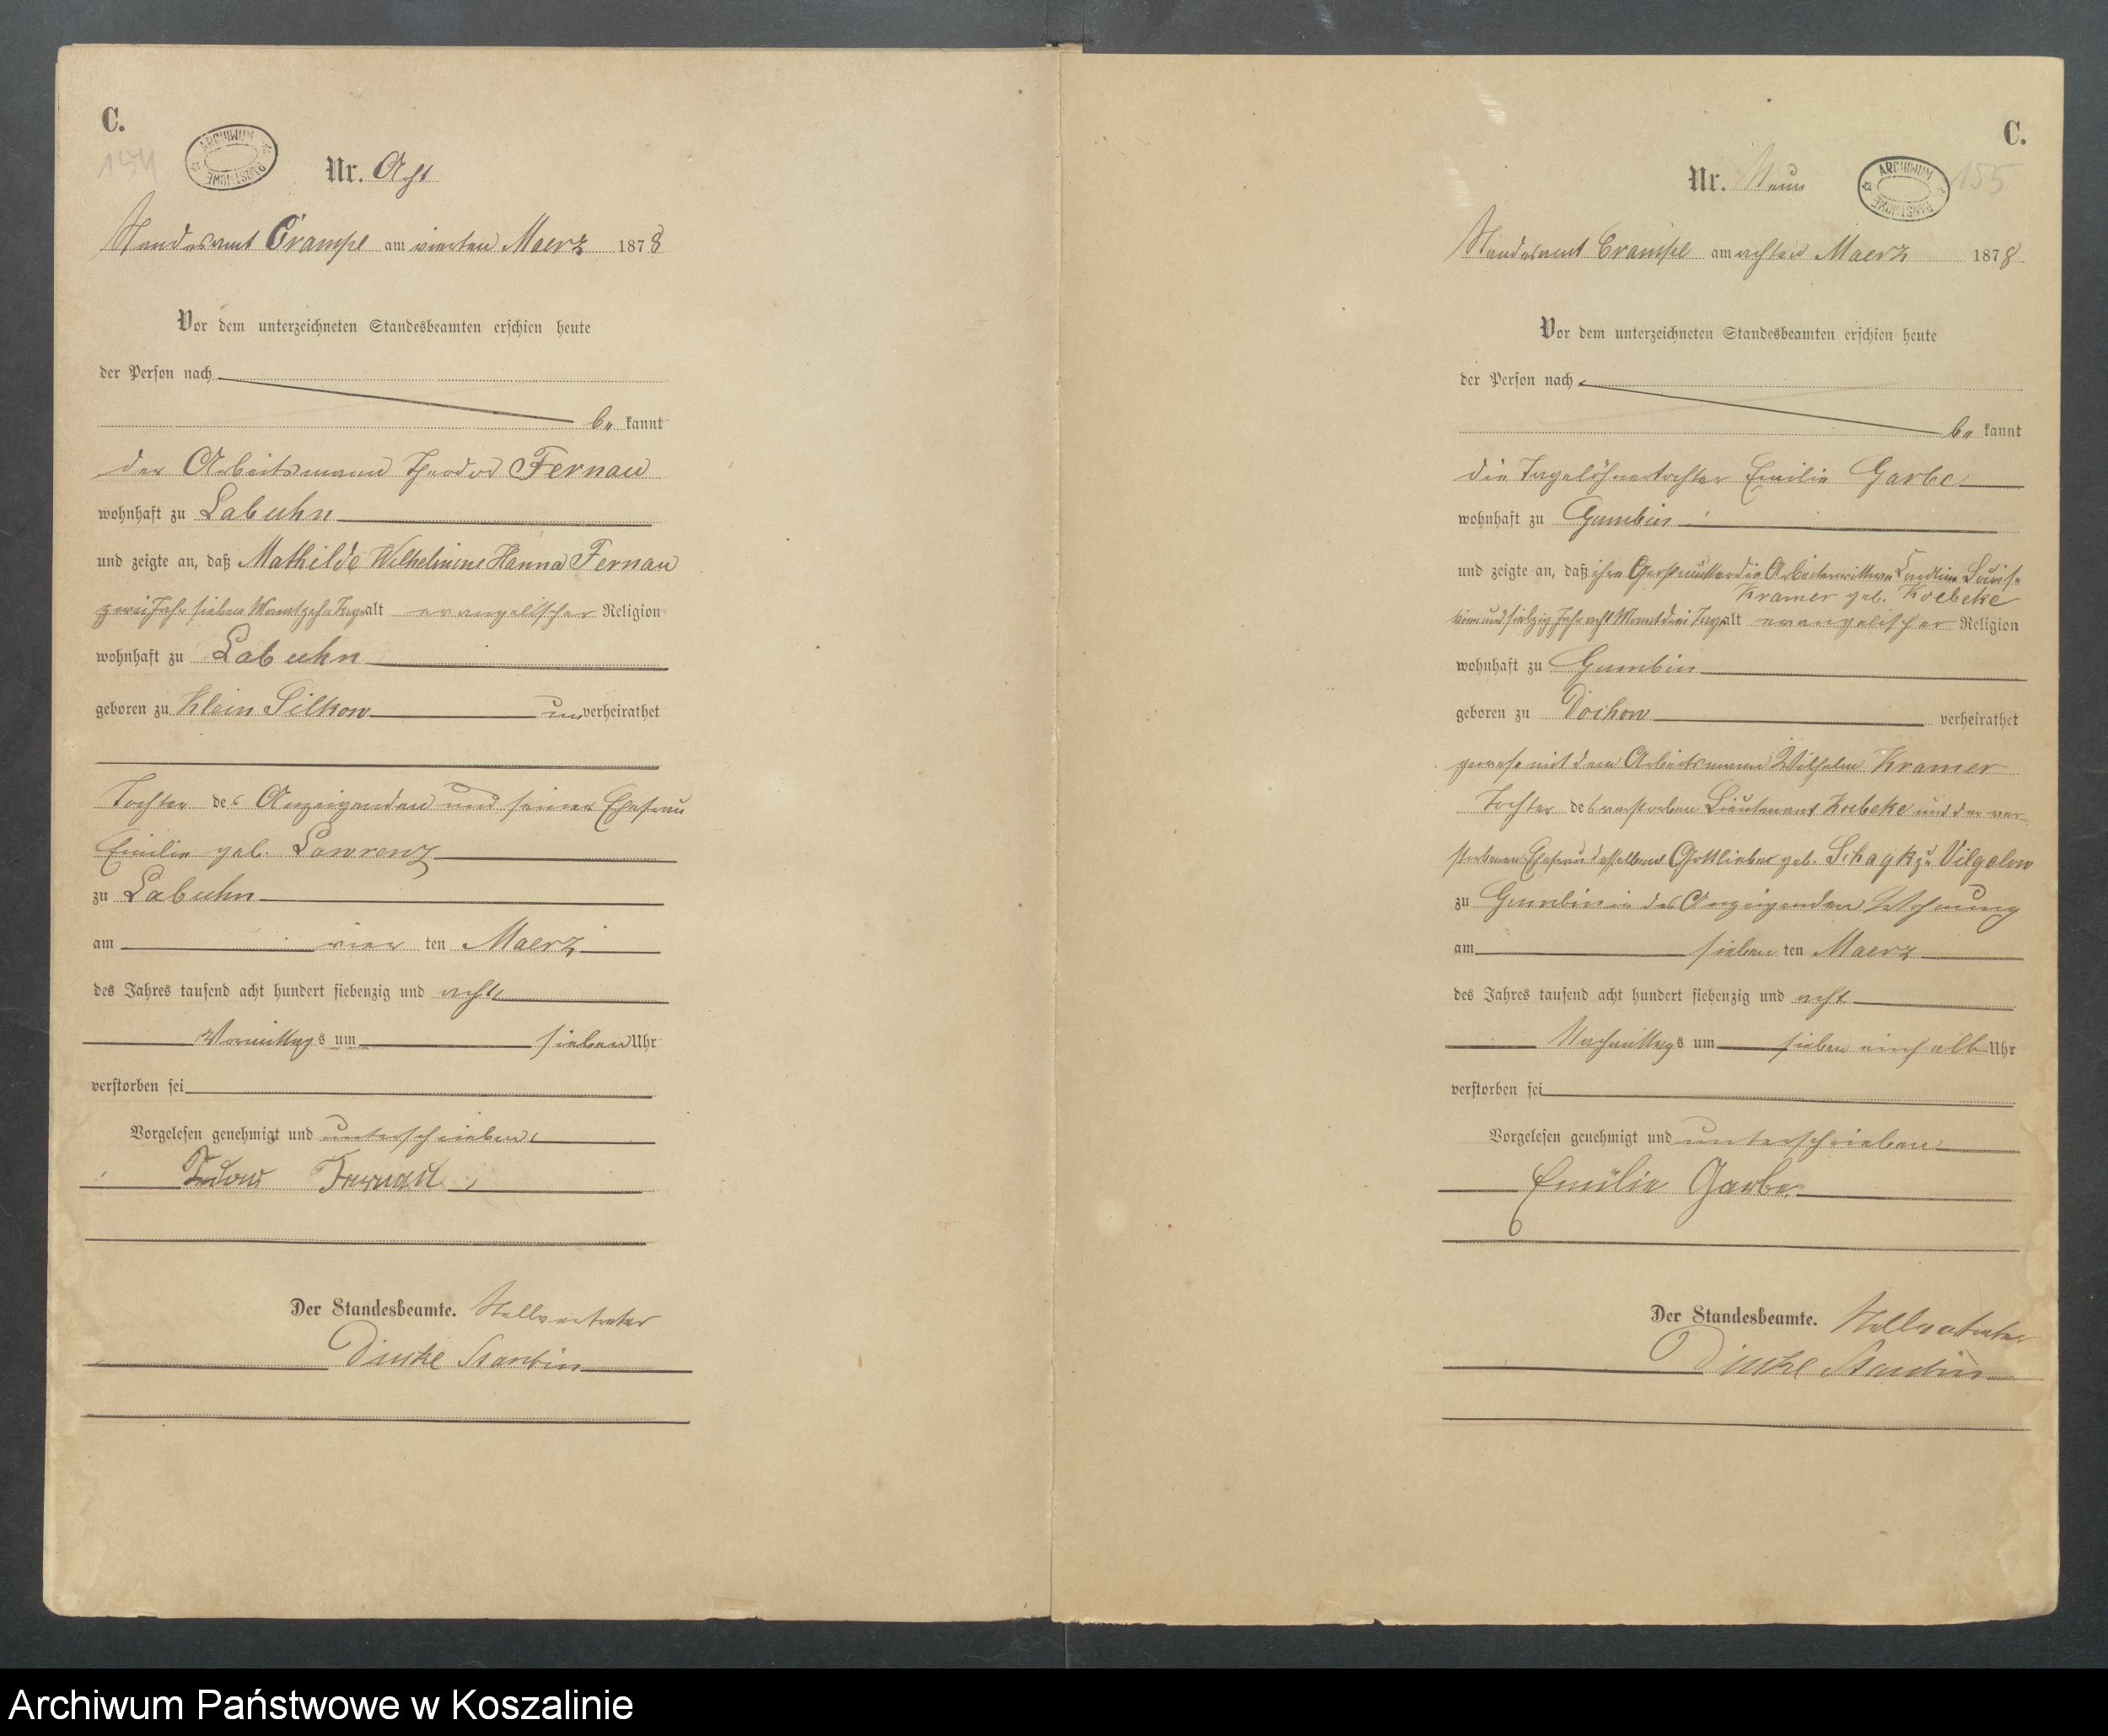 C.
154
ARCHIWUM PAŃSTWOWE
Nr. Acht
Standesamt Crampe am vierten Maerz 1878
Vor dem unterzeichneten Standesbeamten erschien heute
der Person nach
be kannt
der Arbeitsmann Theodor Fernau
wohnhaft zu Labuhn
und zeigte an, daß Mathilde Wilhelmine Hanna Fernau
zwei Jahr sieben Monat zehn Tage alt evangelischer Religion
wohnhaft zu Labuhn
geboren zu Klein Silkow unverheirathet
Tochter des Anzeigenden und seiner Ehefrau
Emilie geb. Lawrenz
zu Labuhn
am vier ten Maerz
des Jahres tausend acht hundert siebenzig und acht
Vormittags um sieben Uhr
verstorben sei
Vorgelesen genehmigt und unterschrieben
Fernau
Der Standesbeamte. Stellvertreter
C.
155
ARCHIWUM PAŃSTWOWE
Nr. Neun
Standesamt Crampe am achten Maerz 1878
Vor dem unterzeichneten Standesbeamten erschien heute
der Person nach
be kannt
die Tagelöhnertochter Emilie Garbe
wohnhaft zu Gumbin
und zeigte an, daß ihre Großmutter die Arbeiterwittwe Louise
Kramer geb. Koebcke
vier und siebzig Jahr acht Monat drei Tage alt evangelischer Religion
wohnhaft zu Gumbin
geboren zu Dochow verheirathet
gewesen mit dem Arbeitsmann Wilhelm Kramer
Tochter des verstorben Lieutenant Koebcke und der ver-
storbenen Ehefrau desselben Gottliebe geb. zu Vilgelow
zu Gumbin in des Anzeigenden Wohnung
am sieben ten Maerz
des Jahres tausend acht hundert siebenzig und acht
Nachmittags um sieben einhalb Uhr
verstorben sei
Vorgelesen genehmigt und unterschrieben
Emilie Garbe
Der Standesbeamte. Stellvertreter
Archiwum Państwowe w Koszalinie